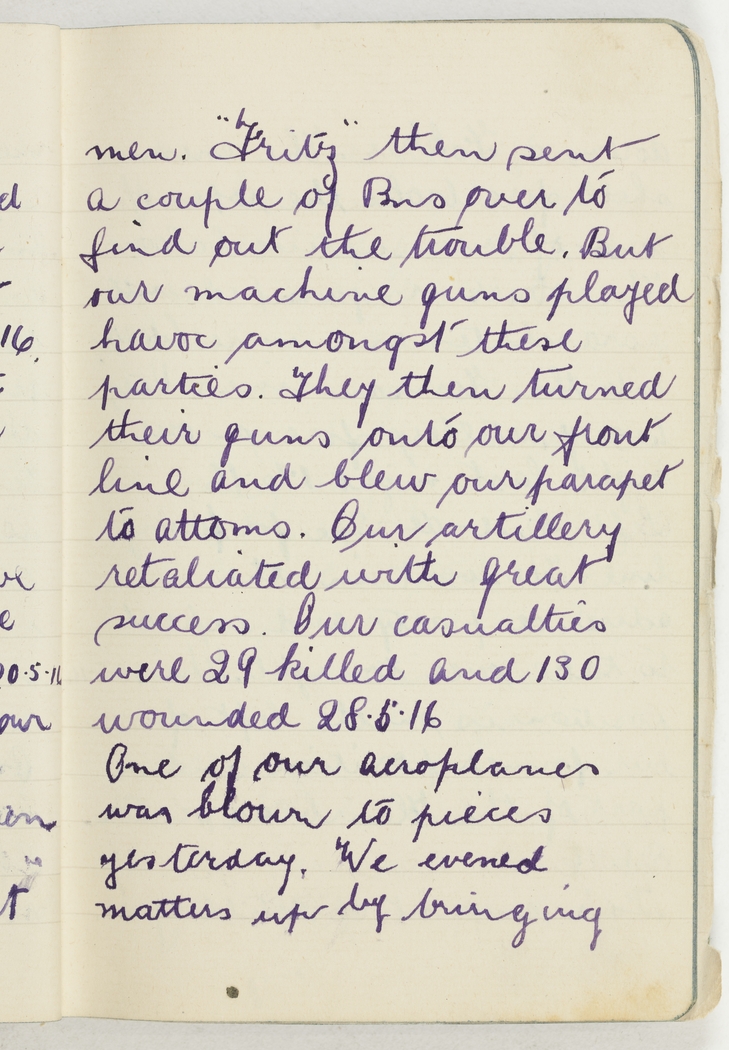 men. "Fritz" then sent
a couple of Bns over to
find out the trouble. But
our machine guns played
havoc amongst these
parties. They then turned
their guns onto our front
line and blew our parapet
to attoms. Our artillery
retaliated with great
success. Our casualties
were 29 killed and 130
wounded 28.5.16
One of our aeroplanes
was blown to pieces
yesterday. We evened
matters up by bringing